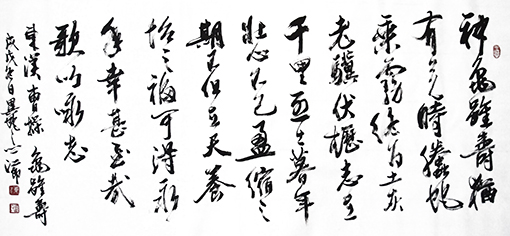 神龜雖壽猶
有竟時螣蛇
乘霧終为土灰
老驥伏櫪志在
千里烈士暮年
壯心不已盈縮之
期不但在天養
怡之福可得永
年幸甚至哉
歌以詠志
東漢曹操 龜雖壽
戊戌冬日